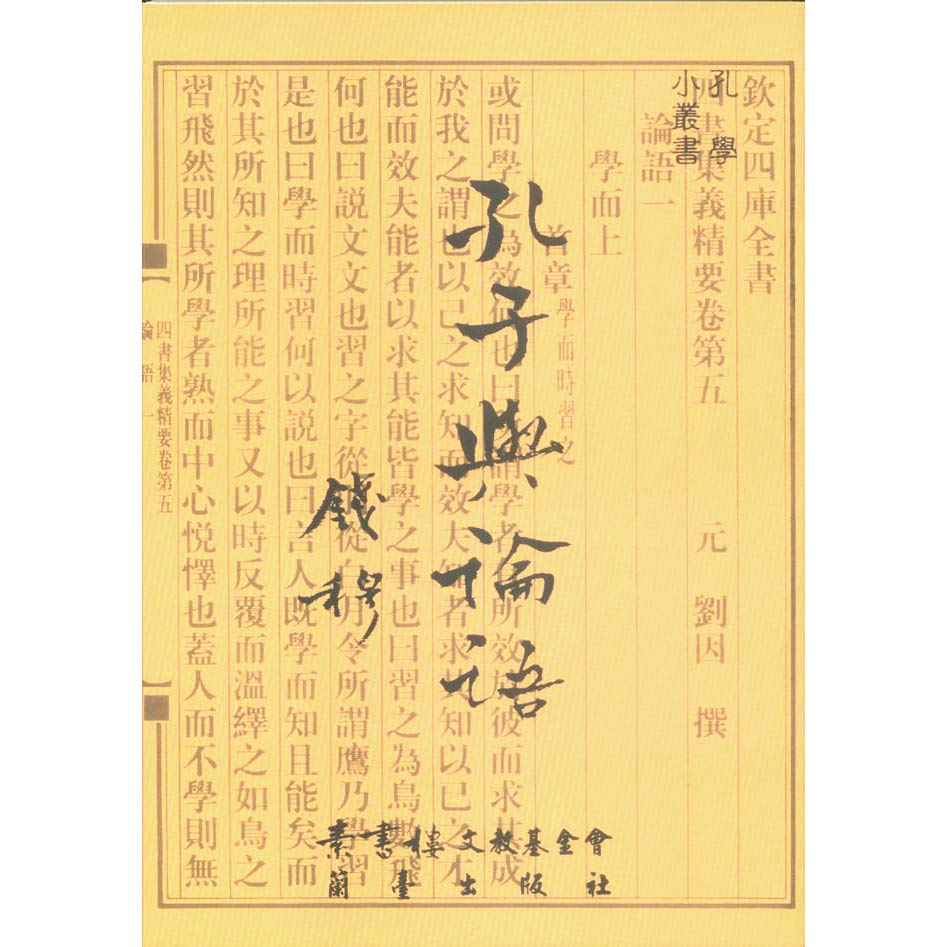 孔學
小叢書
孔子與論語
錢穆
素書樓文教基金會
蘭臺出版社
欽定四庫全書
四書集義精要卷第五 元 劉因 撰
論語一
學而上
首章 學而時習之
或問學之為效何也曰謂學者所效於彼而求其成
於我之謂也以己之求知而效夫知者求其知以已之
能而效夫能者以求其能皆學之事也曰習之為鳥數飛
何也曰説文文也習之字從羽從白月令所謂鷹乃學習
是也曰學而時習何以説也曰言人既學而知且能矣而
於其所知之理所能之事又以時反覆而溫繹之如鳥之
習飛然則其所學者熟而中心悦懌也蓋人而不學則無
四書集義精要卷第五
論語一